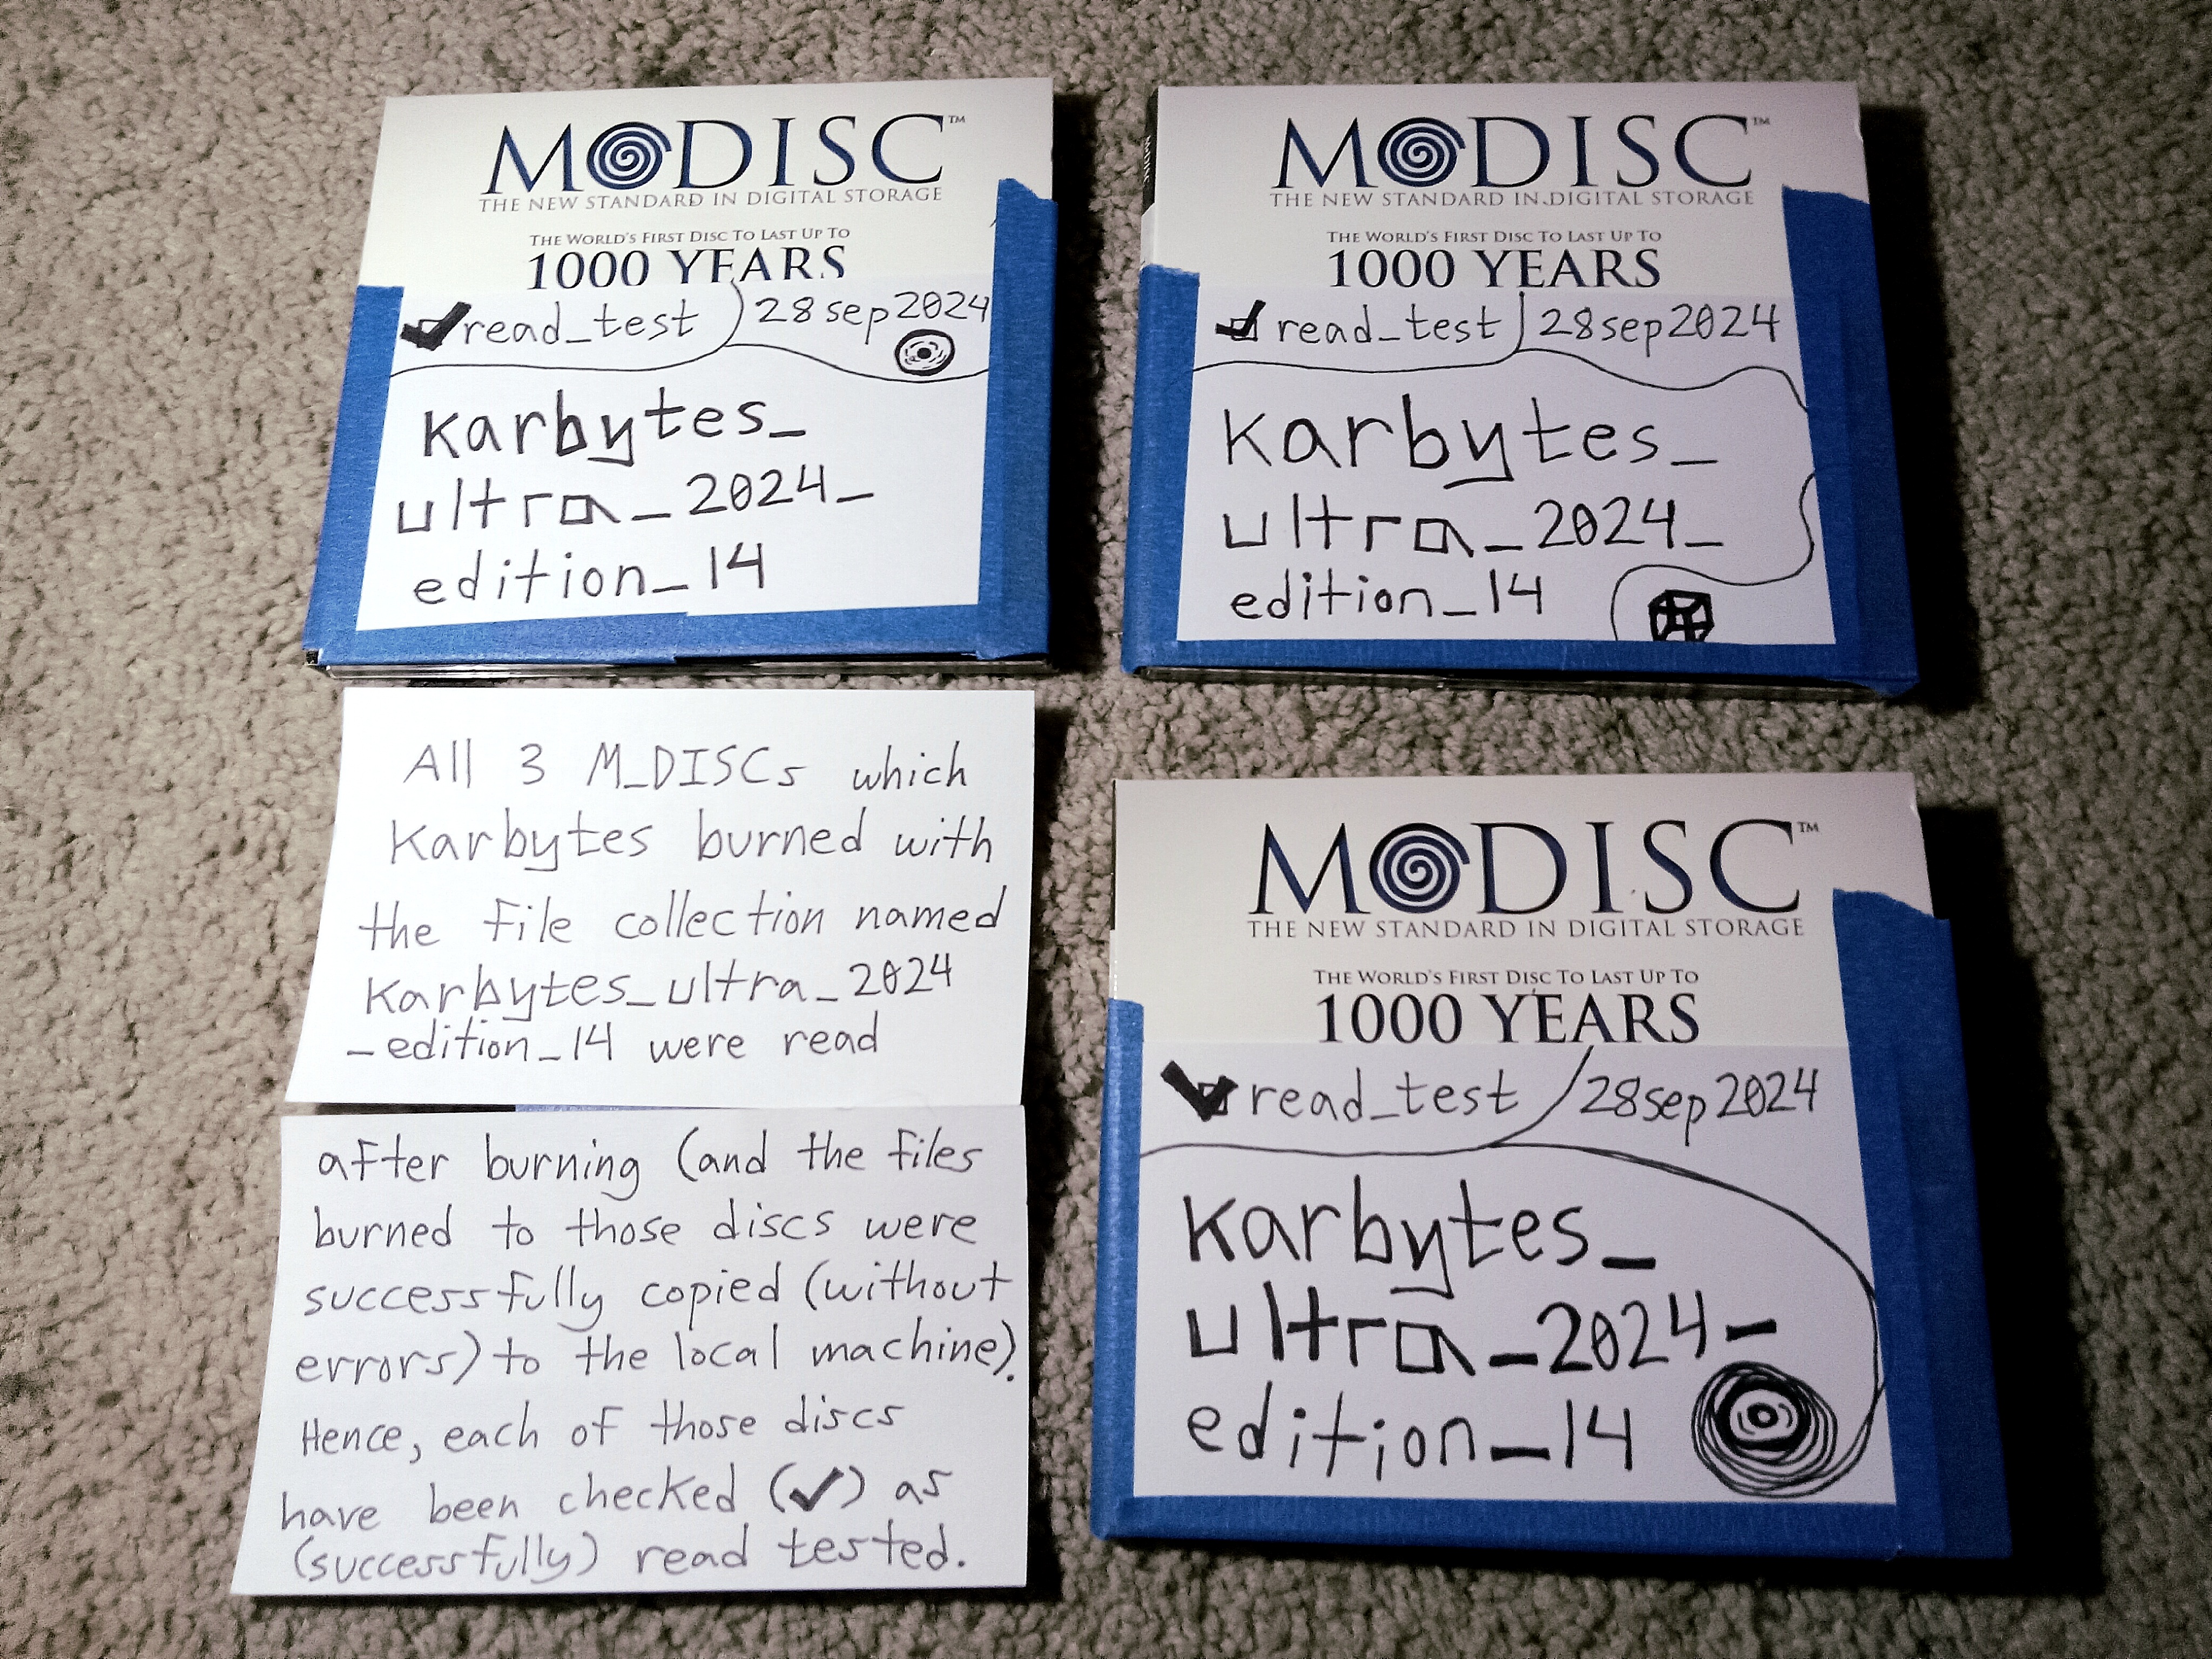 M DISC™
THE NEW STANDARD IN DIGITAL STORAGE
THE WORLD'S FIRST DISC TO LAST UP TO
1000 YEARS
read_test 28sep2024
karbytes_
ultra_2024_
edition_14
M DISC™
THE NEW STANDARD IN DIGITAL STORAGE
THE WORLD'S FIRST DISC TO LAST UP TO
1000 YEARS
read_test 28sep2024
karbytes_
ultra_2024_
edition_14
All 3 M_DISCs which
karbytes burned with
the file collection named
karbytes_ultra_2024
_edition_14 were read
after burning (and the files
burned to those discs were
successfully copied (without
errors) to the local machine).
Hence, each of those discs
have been checked (✓) as
(successfully) read tested.
M DISC™
THE NEW STANDARD IN DIGITAL STORAGE
THE WORLD'S FIRST DISC TO LAST UP TO
1000 YEARS
read_test 28sep2024
karbytes_
ultra_2024_
edition_14